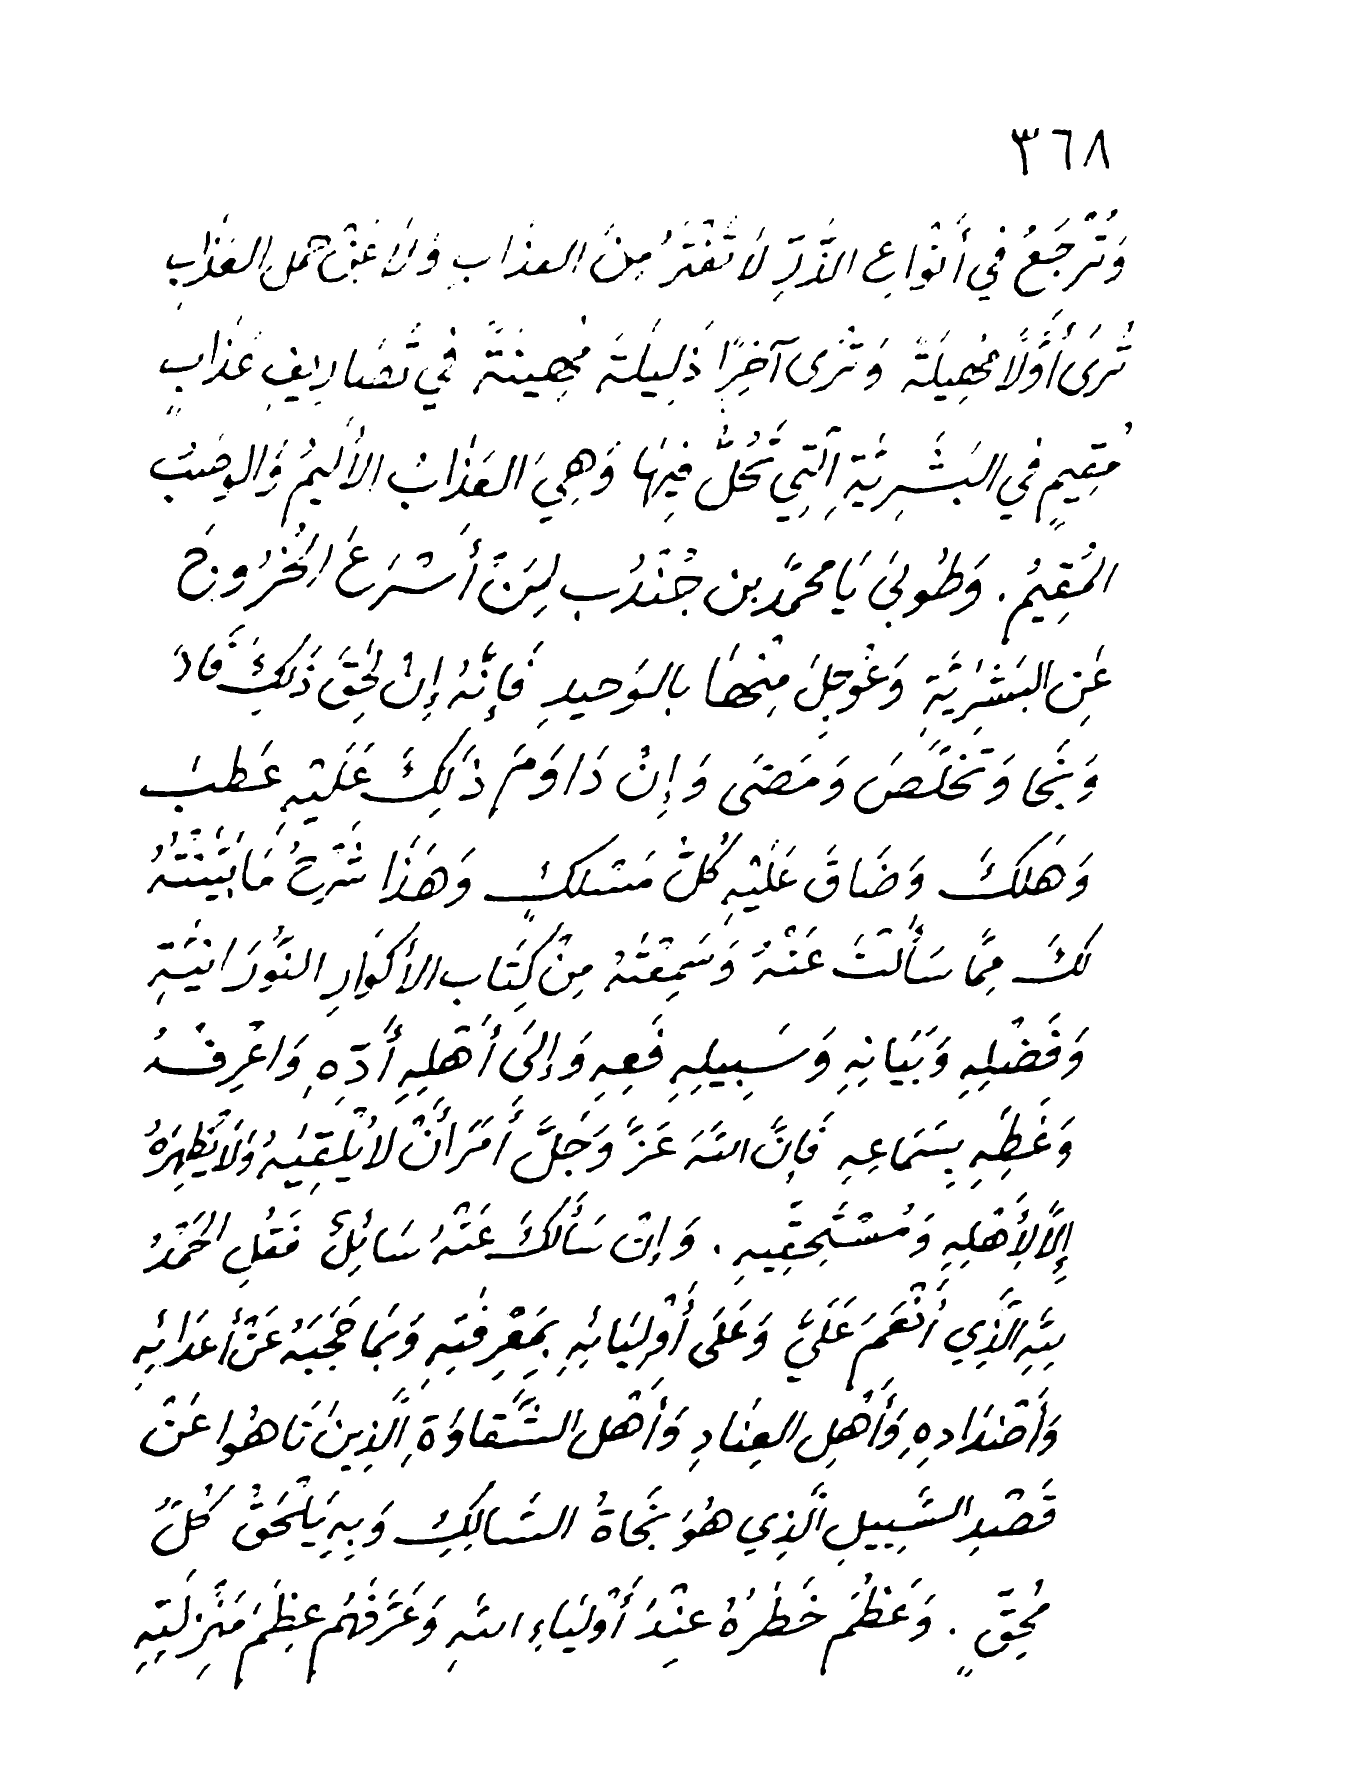 ٣٦٨
وَتُرْجَعُ في أَنْوَاعِ الذَّرِّ لاَ تَفْتَرُ مِنَ العذابِ وَلاَ عَنْ حمل العَذَابِ
تُرَى أَوَّلًا مُهِيلَةً وَتُرَى آخِرًا ذَلِيلَةً مُهِينَةً في تَصَارِيفِ عَذَابٍ
مُقِيمٍ في البَشَرِيَّةِ الَّتِي تَحُلُّ فِيهَا وَهِيَ العَذَابُ الأَلِيمُ وَالوصَبُ
المُقِيمُ . وَطُوبَى يَا محمَّد بن جُنْدُب لِمَنْ أَسْرَعَ الخُرُوجَ
عَنِ البَشَرِيَّةِ وَعُوجِلَ مِنْهَا بالتوحيدِ فَإِنَّهُ إِنْ لَحِقَ ذَلِكَ فَازَ
وَنَجَا وَتَخَلَّصَ وَمَضَى وَإِنْ دَاوَمَ ذَلِكَ عَلَيْهِ عَطبَ
وَهَلَكَ وَضَاقَ عَلَيْهِ كُلُّ مَسْلكٍ وَهَذَا شَرْحُ مَا بَيَّنْتُهُ
لَكَ مِمَّا سَأَلْتَ عَنْهُ وَسَمِعْتَهُ مِنْ كِتَابِ الأكْوَارِ النُّورَانِيَّةِ
وَفَضْلِهِ وَبَيَانِهِ وَسَبِيلِهِ فَعِهِ وَإِلَى أَهْلِهِ أَدِّهِ وَاعْرِفْهُ
وَغَطِّهِ بِسَمَاعِهِ فَإِنَّ اللهَ عَزَّ وَجَلَّ أَمَرَ أَنْ لاَ يُلْقِيَهُ وَلاَ يُظْهِرَهُ
إِلاَّ لِأَهْلِهِ وَمُسْتَحِقِّيهِ . وَإِنْ سَأَلَكَ عَنْهُ سَائِلٌ فَقُلِ الحَمْدُ
لِلَّهِ الَّذِي أَنْعَمَ عَلَيَّ وَعَلَى أَوْلِيَائِهِ بِمَعْرِفَتِهِ وَبِمَا حَجَبَهُ عَنْ أَعْدَائِهِ
وَأَضْدَادِهِ وَأَهْلِ العِنَادِ وَأَهْل الشَّقَاوَةِ الَّذِينَ تَاهُوا عَنْ
قَصْدِ السَّبِيلِ الَّذِي هُوَ نَجَاةُ السَّالِكِ وَبِهِ يَلْحَقُ كُلُّ
مُحِقٍّ . وَعَظُمَ خَطَرُهُ عِنْدَ أَوْلِيَاءِ اللهِ وَعَرَّفَهُم عِظَمَ مَنْزِلَتِهِ